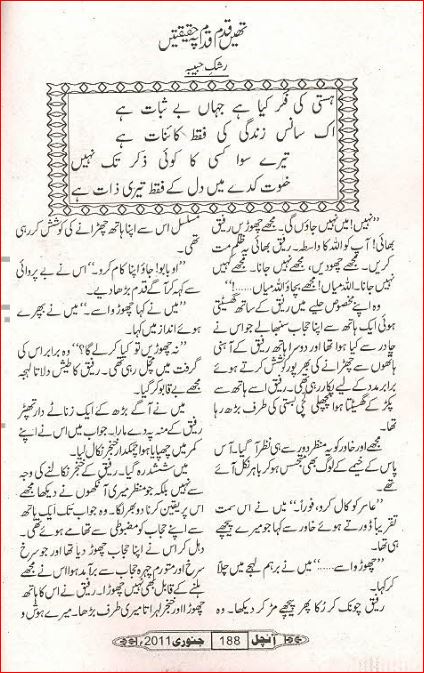 تھیں قدم قدم پہ حقیقتیں
رشک حبیبہ
ہستی کی فکر کیا ہے جہاں بے ثبات ہے
اک سانس زندگی کی فقط کائنات ہے
تیرے سوا کسی کا کوئی ذکر تک نہیں
خلوت کدے میں دل کے فقط تیری ذات ہے
”نہیں! میں نہیں جاؤں گی۔ مجھے چھوڑیں رفیق
بھائی! آپ کو اللہ کا واسطہ۔ رفیق بھائی یہ ظلم مت
کریں۔ مجھے چھوڑدیں، مجھے نہیں جانا۔ مجھے کہیں
نہیں جانا۔ اللہ میاں! مجھے بچاؤ اللہ میاں......!“
وہ اپنے مخصوص حلیے میں رفیق کے ساتھ گھسیٹتی
ہوئی ایک ہاتھ سے اپنا حجاب سنبھالے جو اس نے
چادر سے کیا ہوا تھا اور دوسرا ہاتھ رفیق کے آہنی
ہاتھوں سے چھڑانے کی بھرپور کوشش کرتے ہوئے
برابر مدد کے لیے پکار رہی تھی۔ رفیق اسے ہاتھ سے
پکڑ کے گھسیٹتا ہوا پچھلی کچی بستی کی طرف بڑھ رہا
تھا۔
مجھے اور خاور کو یہ منظر دور سے ہی نظر آ گیا۔ آس
پاس کے خیمے کے لوگ بھی متجسس ہو کر باہر نکل آئے
تھے۔
”عاسر کو کال کرو، فوراً۔“ میں نے اس سمت
تقریباً دوڑتے ہوئے خاور سے کہا جو میرے پیچھے
ہی تھا۔
”چھوڑ واسے......“ میں نے برہم لہجے میں چلا
کر کہا۔
رفیق چونک کر رُکا پھر پیچھے مڑ کر دیکھا۔ وہ
مسلسل اس سے اپنا ہاتھ چھڑانے کی کوشش کر رہی
تھی۔
”او بابو! جاؤ اپنا کام کرو۔“ اس نے بے پروائی
سے کہہ کر آگے قدم بڑھا دیے۔
”میں نے کہا چھوڑ واسے۔“ میں نے بپھرے
ہوئے انداز میں کہا۔
”نہ چھوڑیں تو کیا کر لے گا؟“ وہ برابر اس کی
گرفت میں مچل رہی تھی۔ رفیق کا طیش دلاتا لہجہ
مجھے بے قابو کر گیا۔
میں نے آگے بڑھ کے ایک زناٹے دار تھپڑ
رفیق کے منہ پہ دے مارا۔ جواب میں اس نے اپنے
کمر میں چھپایا ہوا چمکدار خنجر نکال لیا۔
میں ششدر رہ گیا۔ رفیق کے خنجر نکالنے کی وجہ
سے نہیں بلکہ جو منظر میری آنکھوں نے دیکھا مجھے
اس پر یقین کرنا دوبھر لگا۔ وہ جو اب تک ایک ہاتھ
سے اپنے حجاب کو مضبوطی سے تھامے ہوئے تھی۔
دہل کر اس نے اپنا حجاب چھوڑ دیا تھا اور جو سرخ
سرخ اور متورم چہرہ حجاب سے برآمد ہوا اس نے مجھے
ہلنے کے قابل بھی نہیں چھوڑا۔ رفیق نے اس کا ہاتھ
چھوڑا اور خنجر لہراتا میری طرف بڑھا۔ میرے ہوش و
آنچل 188 جنوری 2011ء